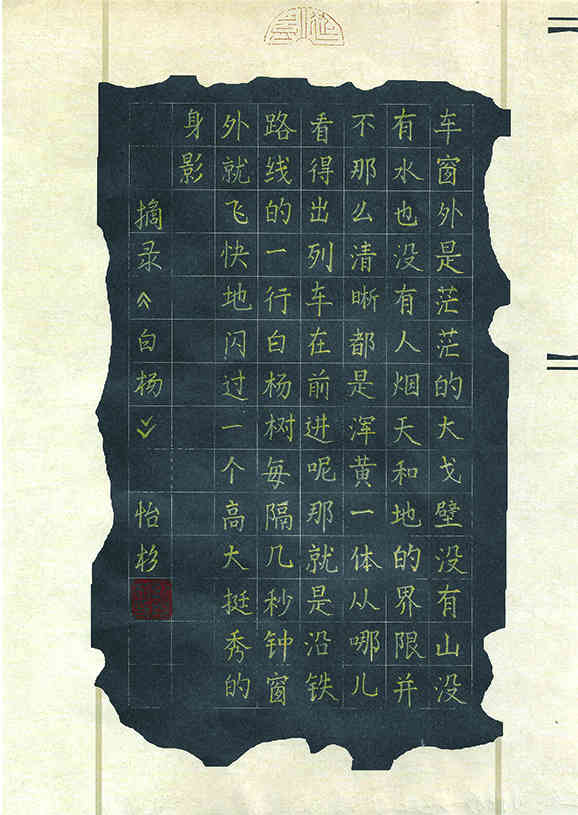 车窗外是茫茫的大戈壁没有山没
有水也没有人烟天和地的界限并
不那么清晰都是浑黄一体从哪儿
看得出列车在前进呢那就是沿铁
路线的一行白杨树每隔几秒钟窗
外就飞快地闪过一个高大挺秀的
身影
摘录《白杨》 怡杉